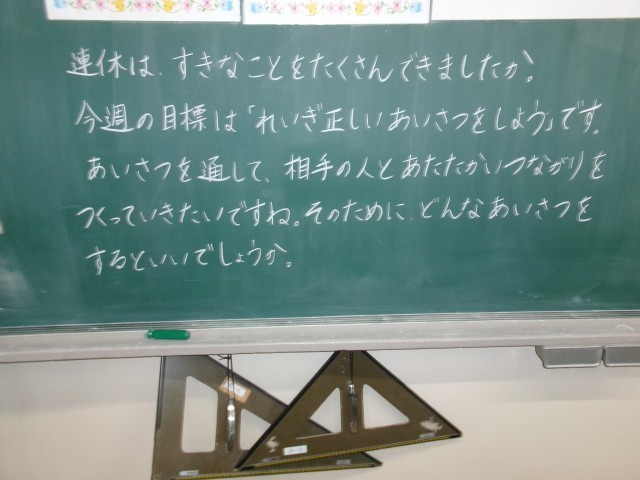 連休は、すきなことをたくさんできましたか。
今週の目標は「れいぎ正しいあいさつをしよう」です。
あいさつを通して、相手の人とあたたかいつながりを
つくっていきたいですね。そのために、どんなあいさつを
するといいでしょうか。